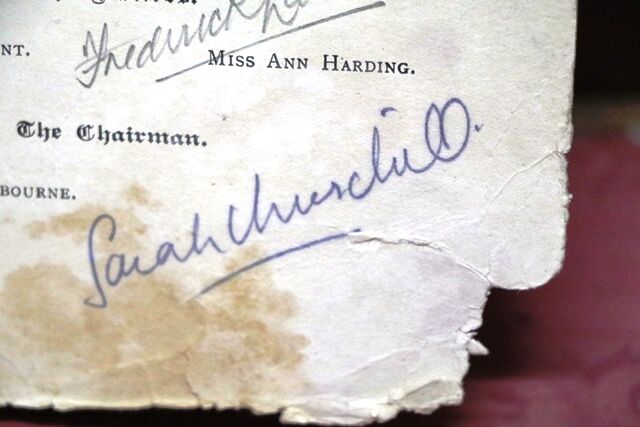 NT.
Frederick
MISS ANN HARDING.
The Chairman.
BOURNE.
Sarah Churchill.